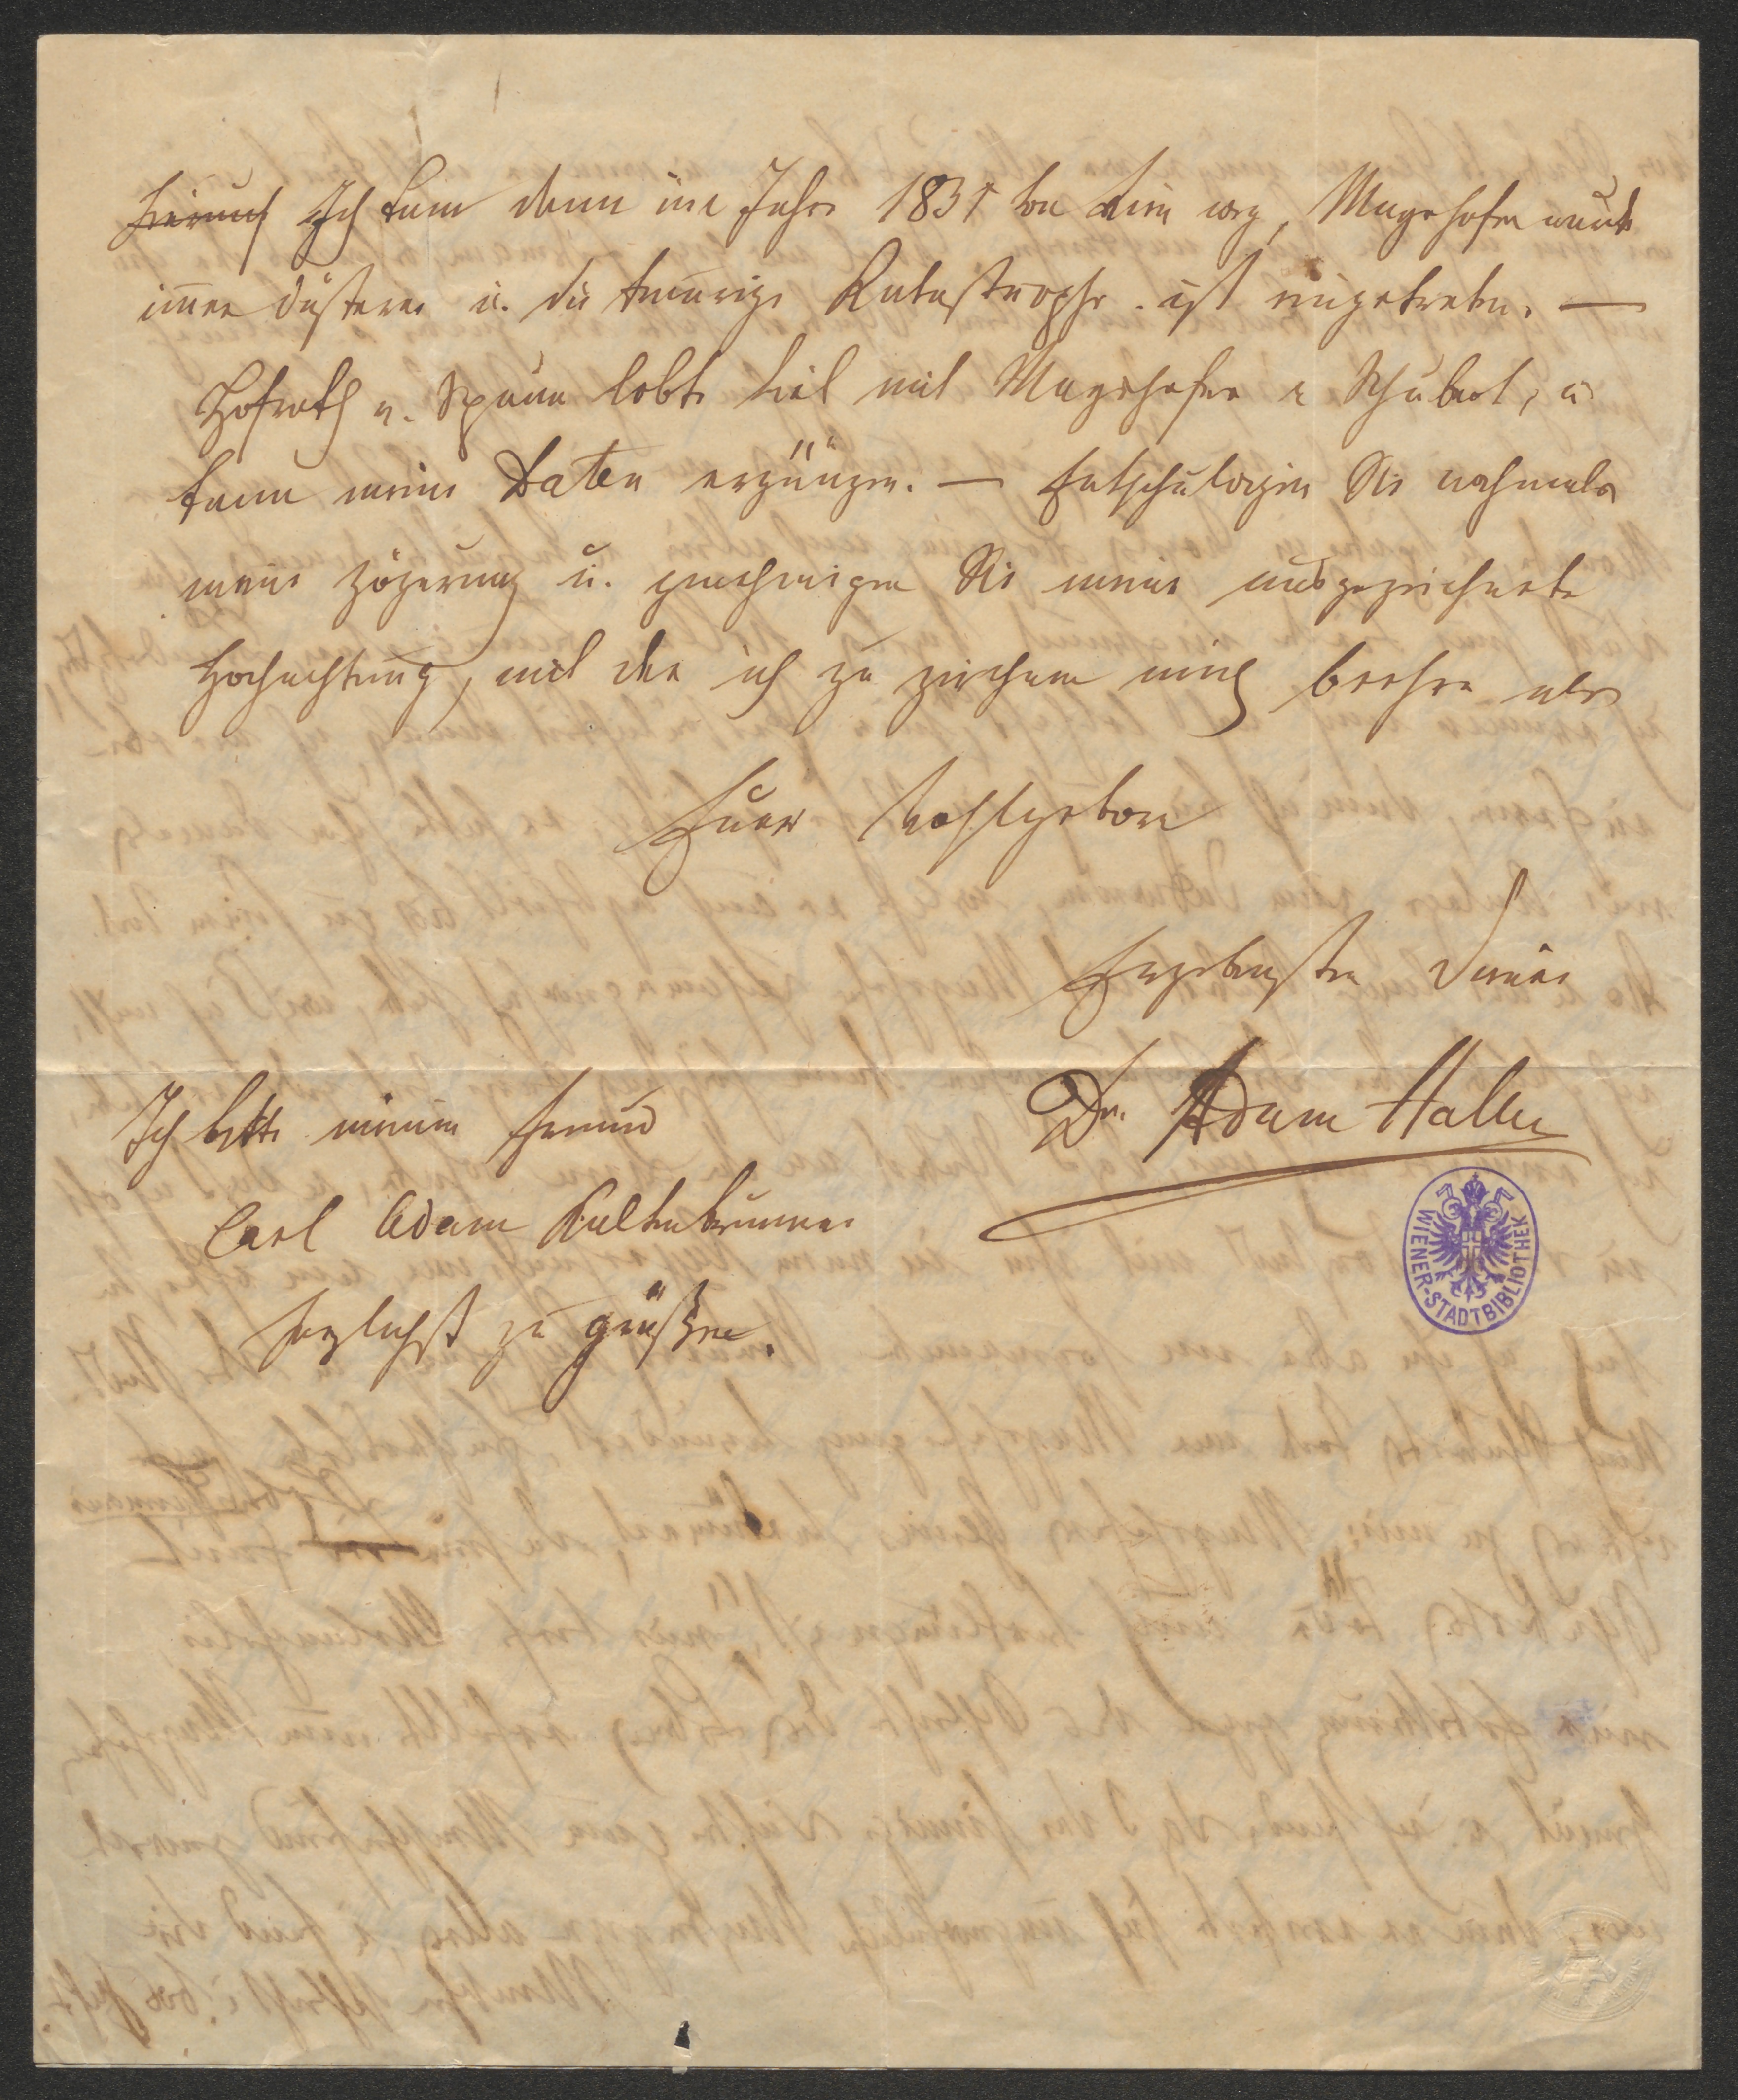 Ich kam dann im Jahre 1831 von Wien weg, Mayrhofer wurde
immer düsterer u. die traurige Katastrophe ist eingetreten. —
Hofrath v. Spaun lebte viel mit Mayrhofer u Schubert, u
kann meine Daten ergänzen. — Entschuldigen Sie nochmals
meine Zögerung u. genehmigen Sie meine ausgezeichnete
Hochachtung, mit der ich zu zeichnen mich beehre als
Euer Wohlgeboren
Ergebenster Diener
Dr. Adam Haller
Ich bitte meinen Freund
Carl Adam Kaltenbrunner
herzlichst zu grüßen.
WIENER-STADTBIBLIOTHEK